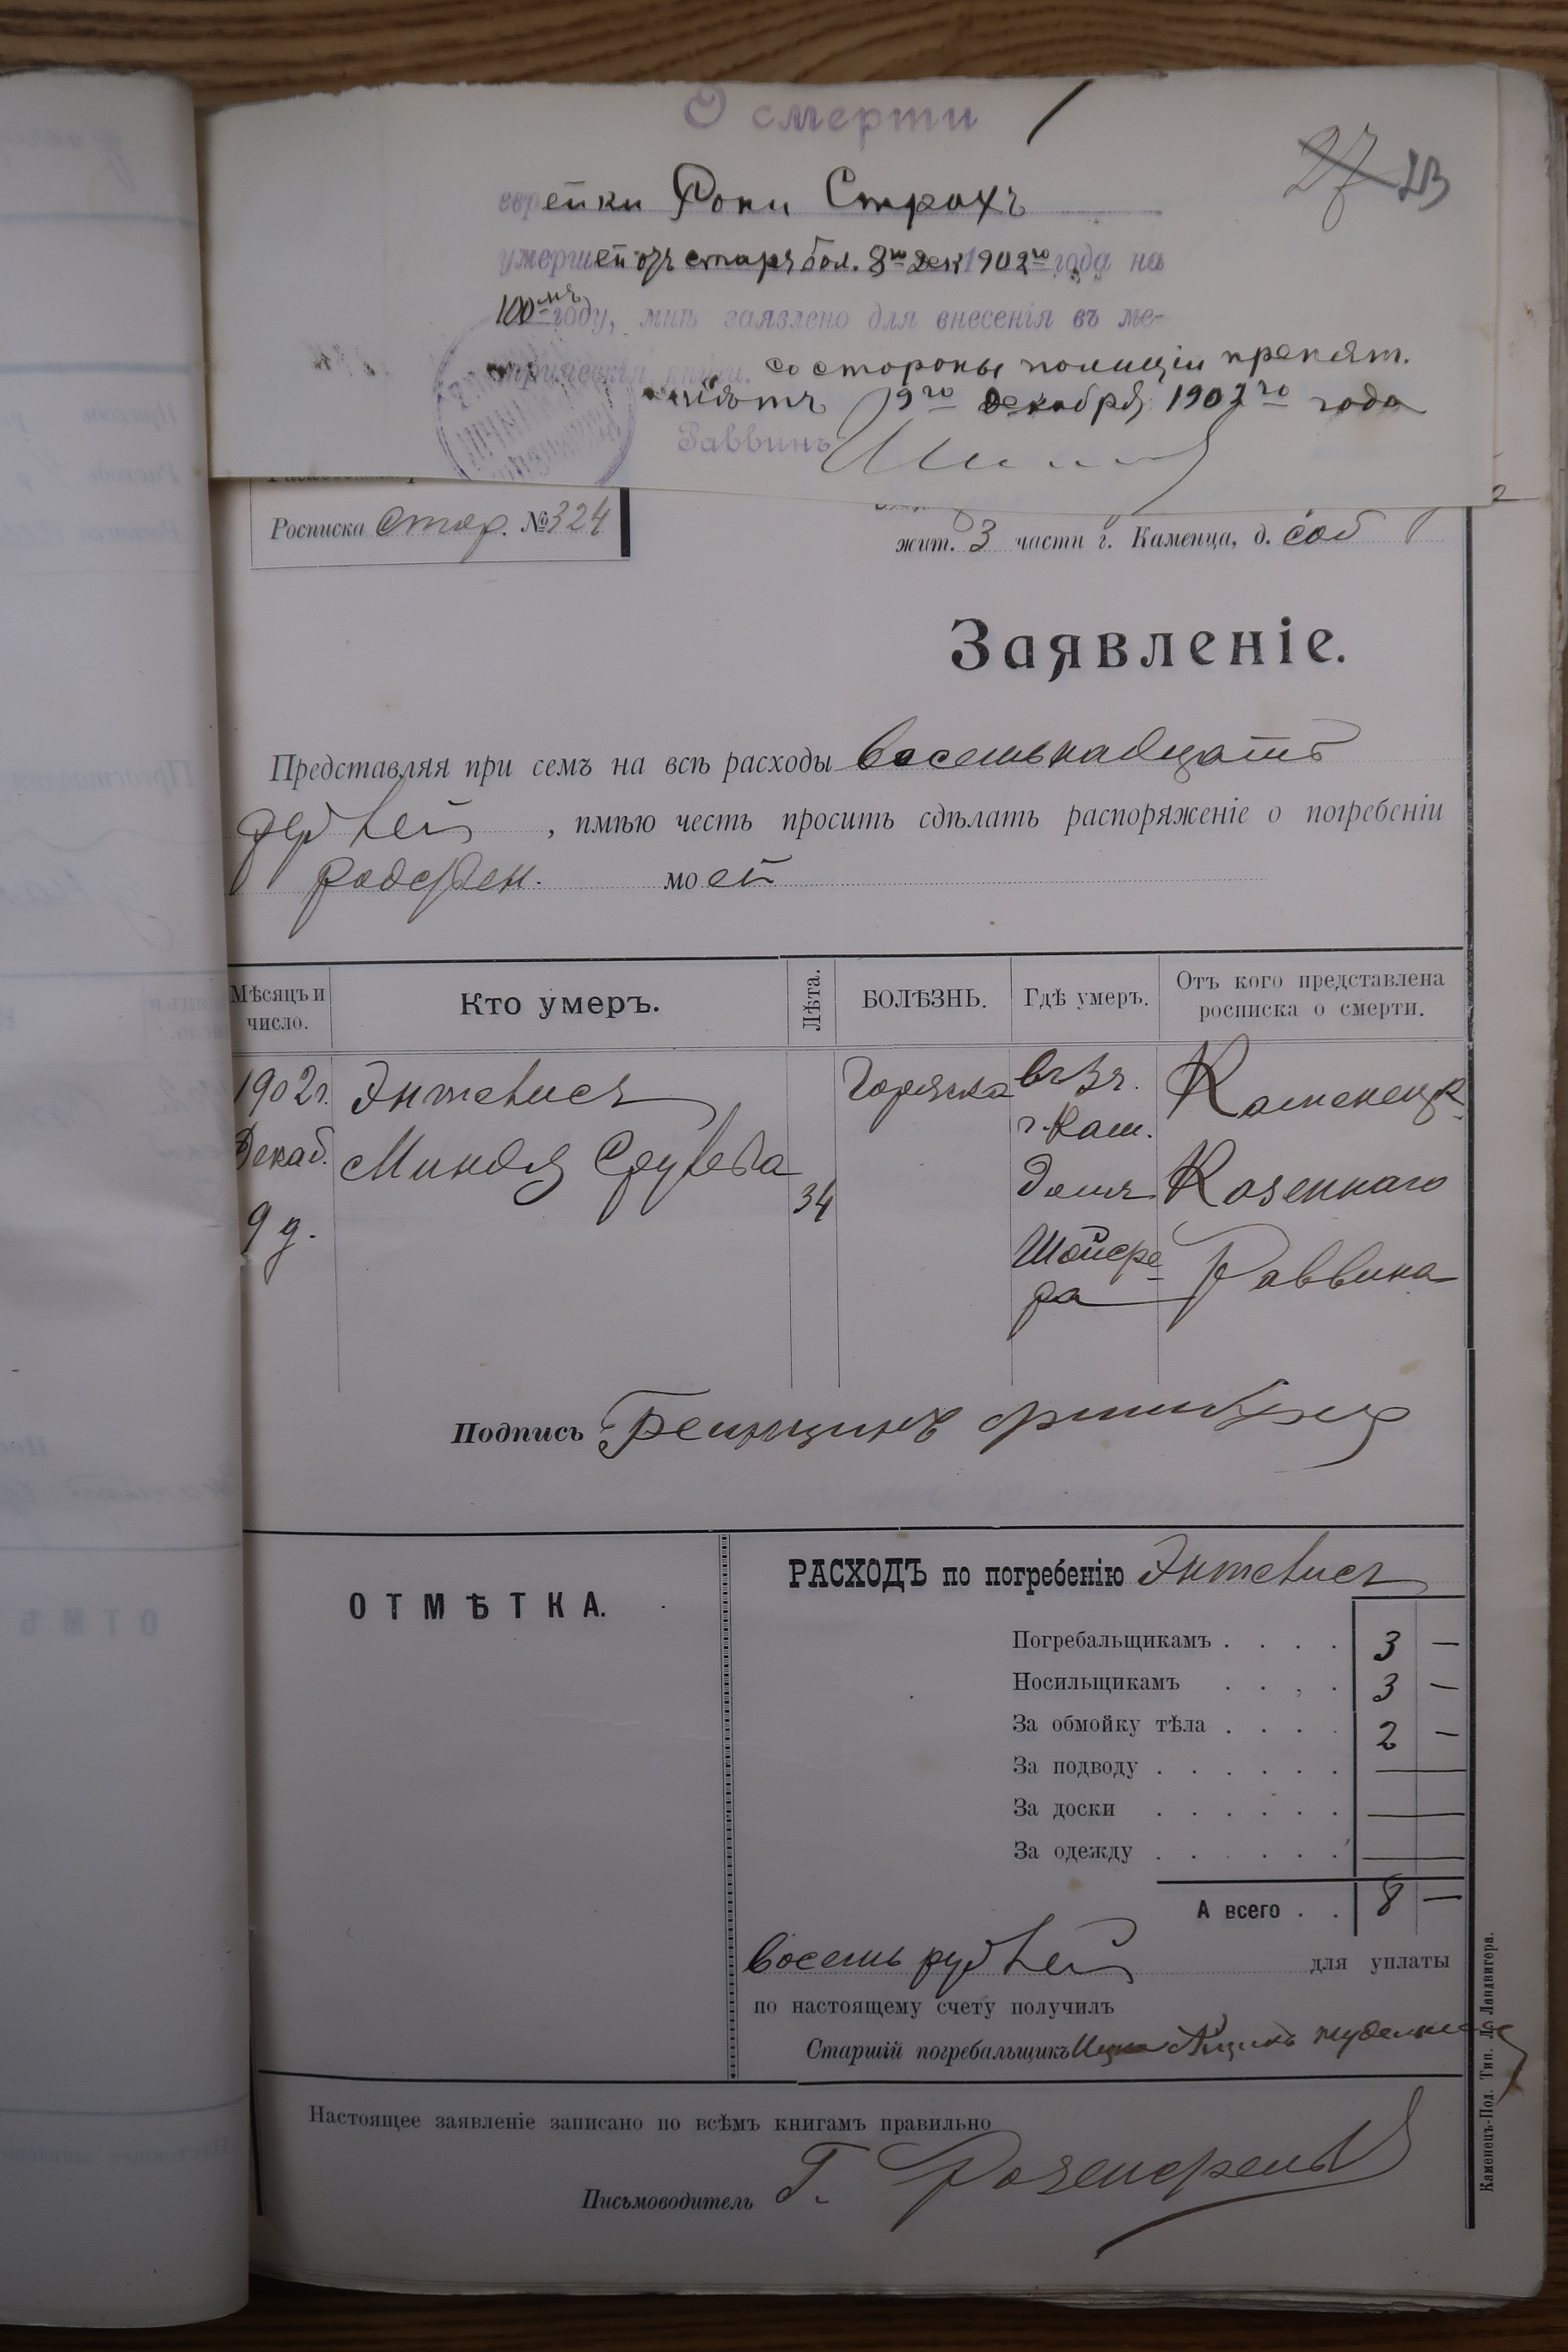 О смерти
27 23
еврейки Рони Страхъ
умершей отъ стар. бол. 8го Дек 1902го года на
100мъ году, мнѣ заявлено для внесенія въ ме-
трическія книги. со стороны полиціи препят.
нѣтъ 9го Декабря 1902го года
Раввинъ
Росписка стор. №324
жит. 3 части г. Каменца, д. соб
Заявленіе.
Представляя при семъ на всѣ расходы восемьнадцать
рублей, имѣю честь просить сдѣлать распоряженіе о погребеніи
родствен. моей
Мѣсяцъ и число. Кто умеръ. Лѣта. БОЛѢЗНЬ. Гдѣ умеръ. Отъ кого представлена росписка о смерти.
1902г. Энтелисъ Горячка въ 3ч. Каменецк.
Декаб. Миндя Срулева 34 г. Кам. Казеннаго
9 д. домъ Раввина
Шойхе-
ра
Подпись
ОТМѢТКА.
РАСХОДЪ по погребенію Энтелисъ
Погребальщикамъ . . . . 3 —
Носильщикамъ . . . . 3 —
За обмойку тѣла . . . . 2 —
За подводу . . . . . . —
За доски . . . . . . —
За одежду . . . . . . —
А всего . . 8 —
восемь рублей для уплаты
по настоящему счету получилъ
Старшій погребальщикъ Ицко Айзикъ
Настоящее заявленіе записано по всѣмъ книгамъ правильно
Письмоводитель Г. Розенфельд
Каменецъ-Под. Тип. Л. Ландвигера.